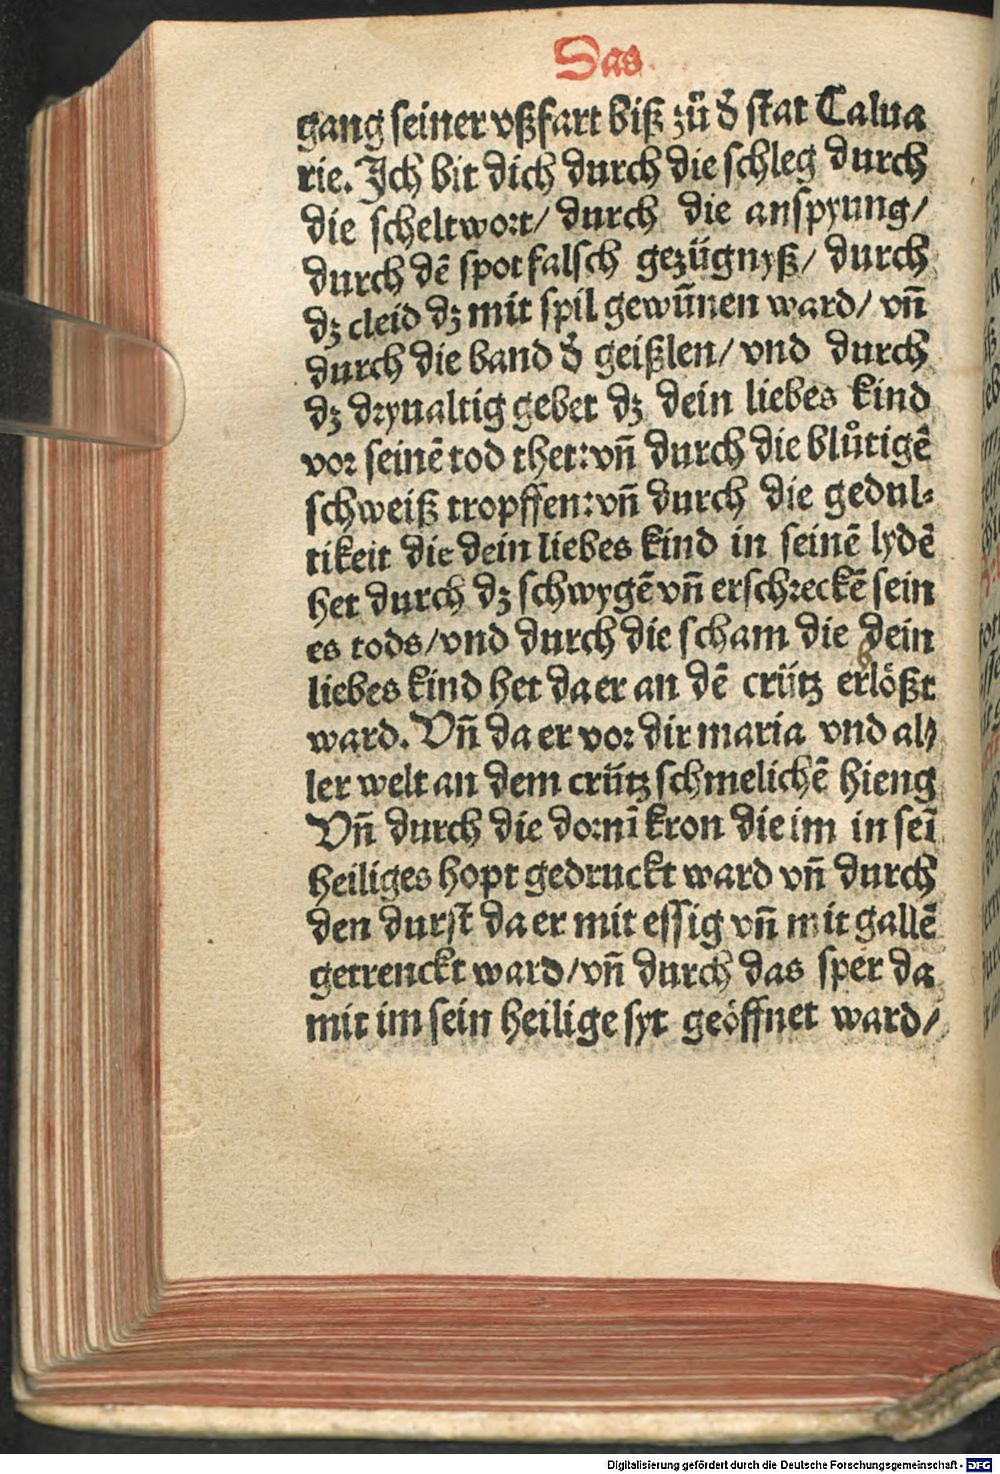 Das
gang seiner vßfart biß zů d̄ stat Calua
rie. Ich bit dich durch die schleg durch
die scheltwort/ durch die anspyung/
durch dē spot falsch gezügnyß/ durch
dꝫ cleid dꝫ mit spil gewūnen ward/ vn̄
durch die band d̄ geißlen/ vnd durch
dꝫ dryualtig gebet dꝫ dein liebes kind
vor seinē tod thet: vn̄ durch die blůtigē
schweiß tropffen: vn̄ durch die gedul⸗
tikeit die dein liebes kind in seinē lydē
het durch dꝫ schwygē vn̄ erschreckē sein
es tods/ vnd durch die scham die dein
liebes kind het da er an dē crütz erlößt
ward. Vn̄ da er vor dir maria vnd al⸗
ler welt an dem crütz schmelichē hieng
Vn̄ durch die dornī kron die im in seī
heiliges hopt gedruckt ward vn̄ durch
den durst da er mit essig vn̄ mit gallē
getrenckt ward/ vn̄ durch das sper da
mit im sein heilige syt geöffnet ward/
Digitalisierung gefördert durch die Deutsche Forschungsgemeinschaft - DFG